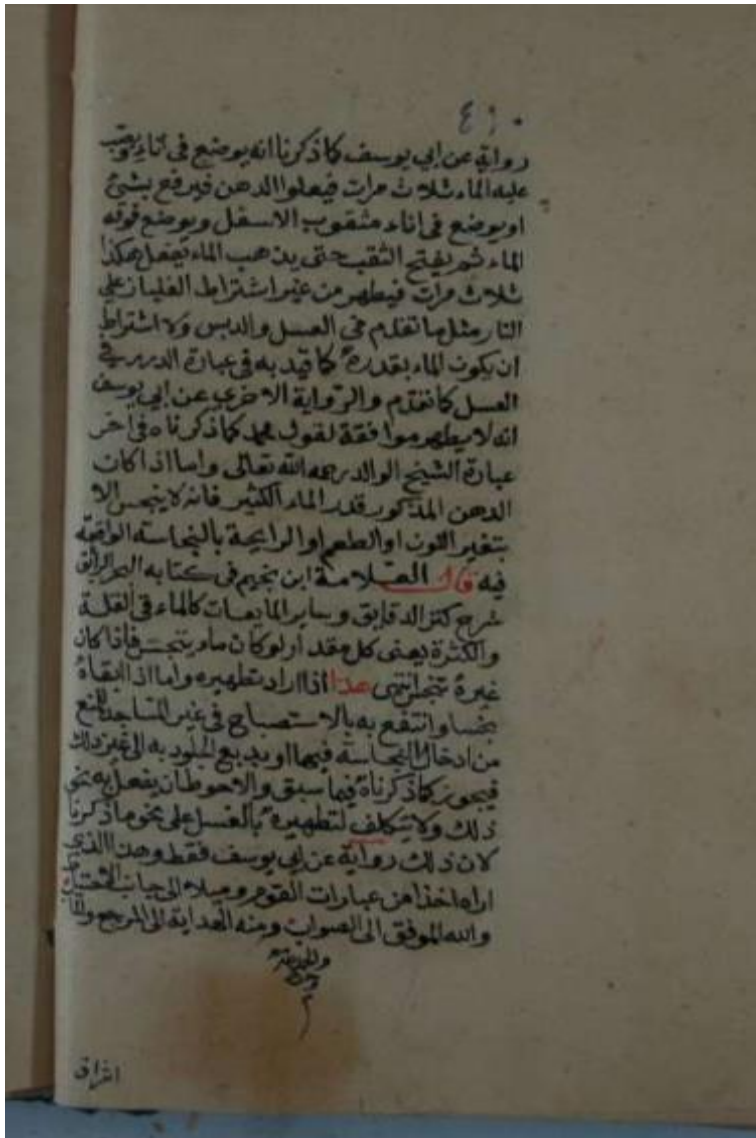 ٤١٠
رواية عن ابي يوسف كما ذكرنا انه يوضع في اناء ويصب
عليه الماء ثلاث مرات فيعلوا الدهن فيرفع بشئ
او يوضع في اناء مثقوب الاسفل ويوضع فوقه
الماء ثم يفتح الثقب حتى يذهب الماء تفعل هكذا
ثلاث مرات فيطهر من غير اشتراط الغليان علي
النار مثل ما تقدم في العسل والدبس ولا اشتراط
ان يكون الماء بقدره كما قيد به في عبارة الدرر في
العسل كما تقدم والرواية الاخري عن ابي يوسف
انه لا يطهر موافقة لقول محمد كما ذكرناه في اخر
عبارة الشيخ الوالد رحمه الله تعالى واما اذا كان
الدهن المذكور قدر الماء الكثير فانه لا ينجس الا
بتغير اللون او الطعم او الرايحة بالنجاسة الواقعة
فيه قال العلامة ابن نجيم في كتابه البحر الرائق
شرح كنز الدقايق وساير المايعات كالماء في القلة
والكثرة يعنى كل مقدار لو كان ماء يتنجس فاذا كان
غيره تنجس انتهى هذا اذا اراد تطهيره واما اذا ابقاه
نجسا وانتفع به بالاستصباح في غير المساجد للمنع
من ادخال النجاسة فيها او يدبغ الجلود به الى غير ذلك
فيجوز كما ذكرناه فيما سبق والاحوط ان يفعل به نحو
ذلك ولا يتكلف لتطهيره بالغسل على نحو ما ذكرنا
لان ذلك رواية عن ابي يوسف فقط وهذا الذي
اراه اخذا من عبارات القوم وميلا الى جانب الاحتياط
والله الموفق الى الصواب ومنه الهداية الى المرجع والمآب